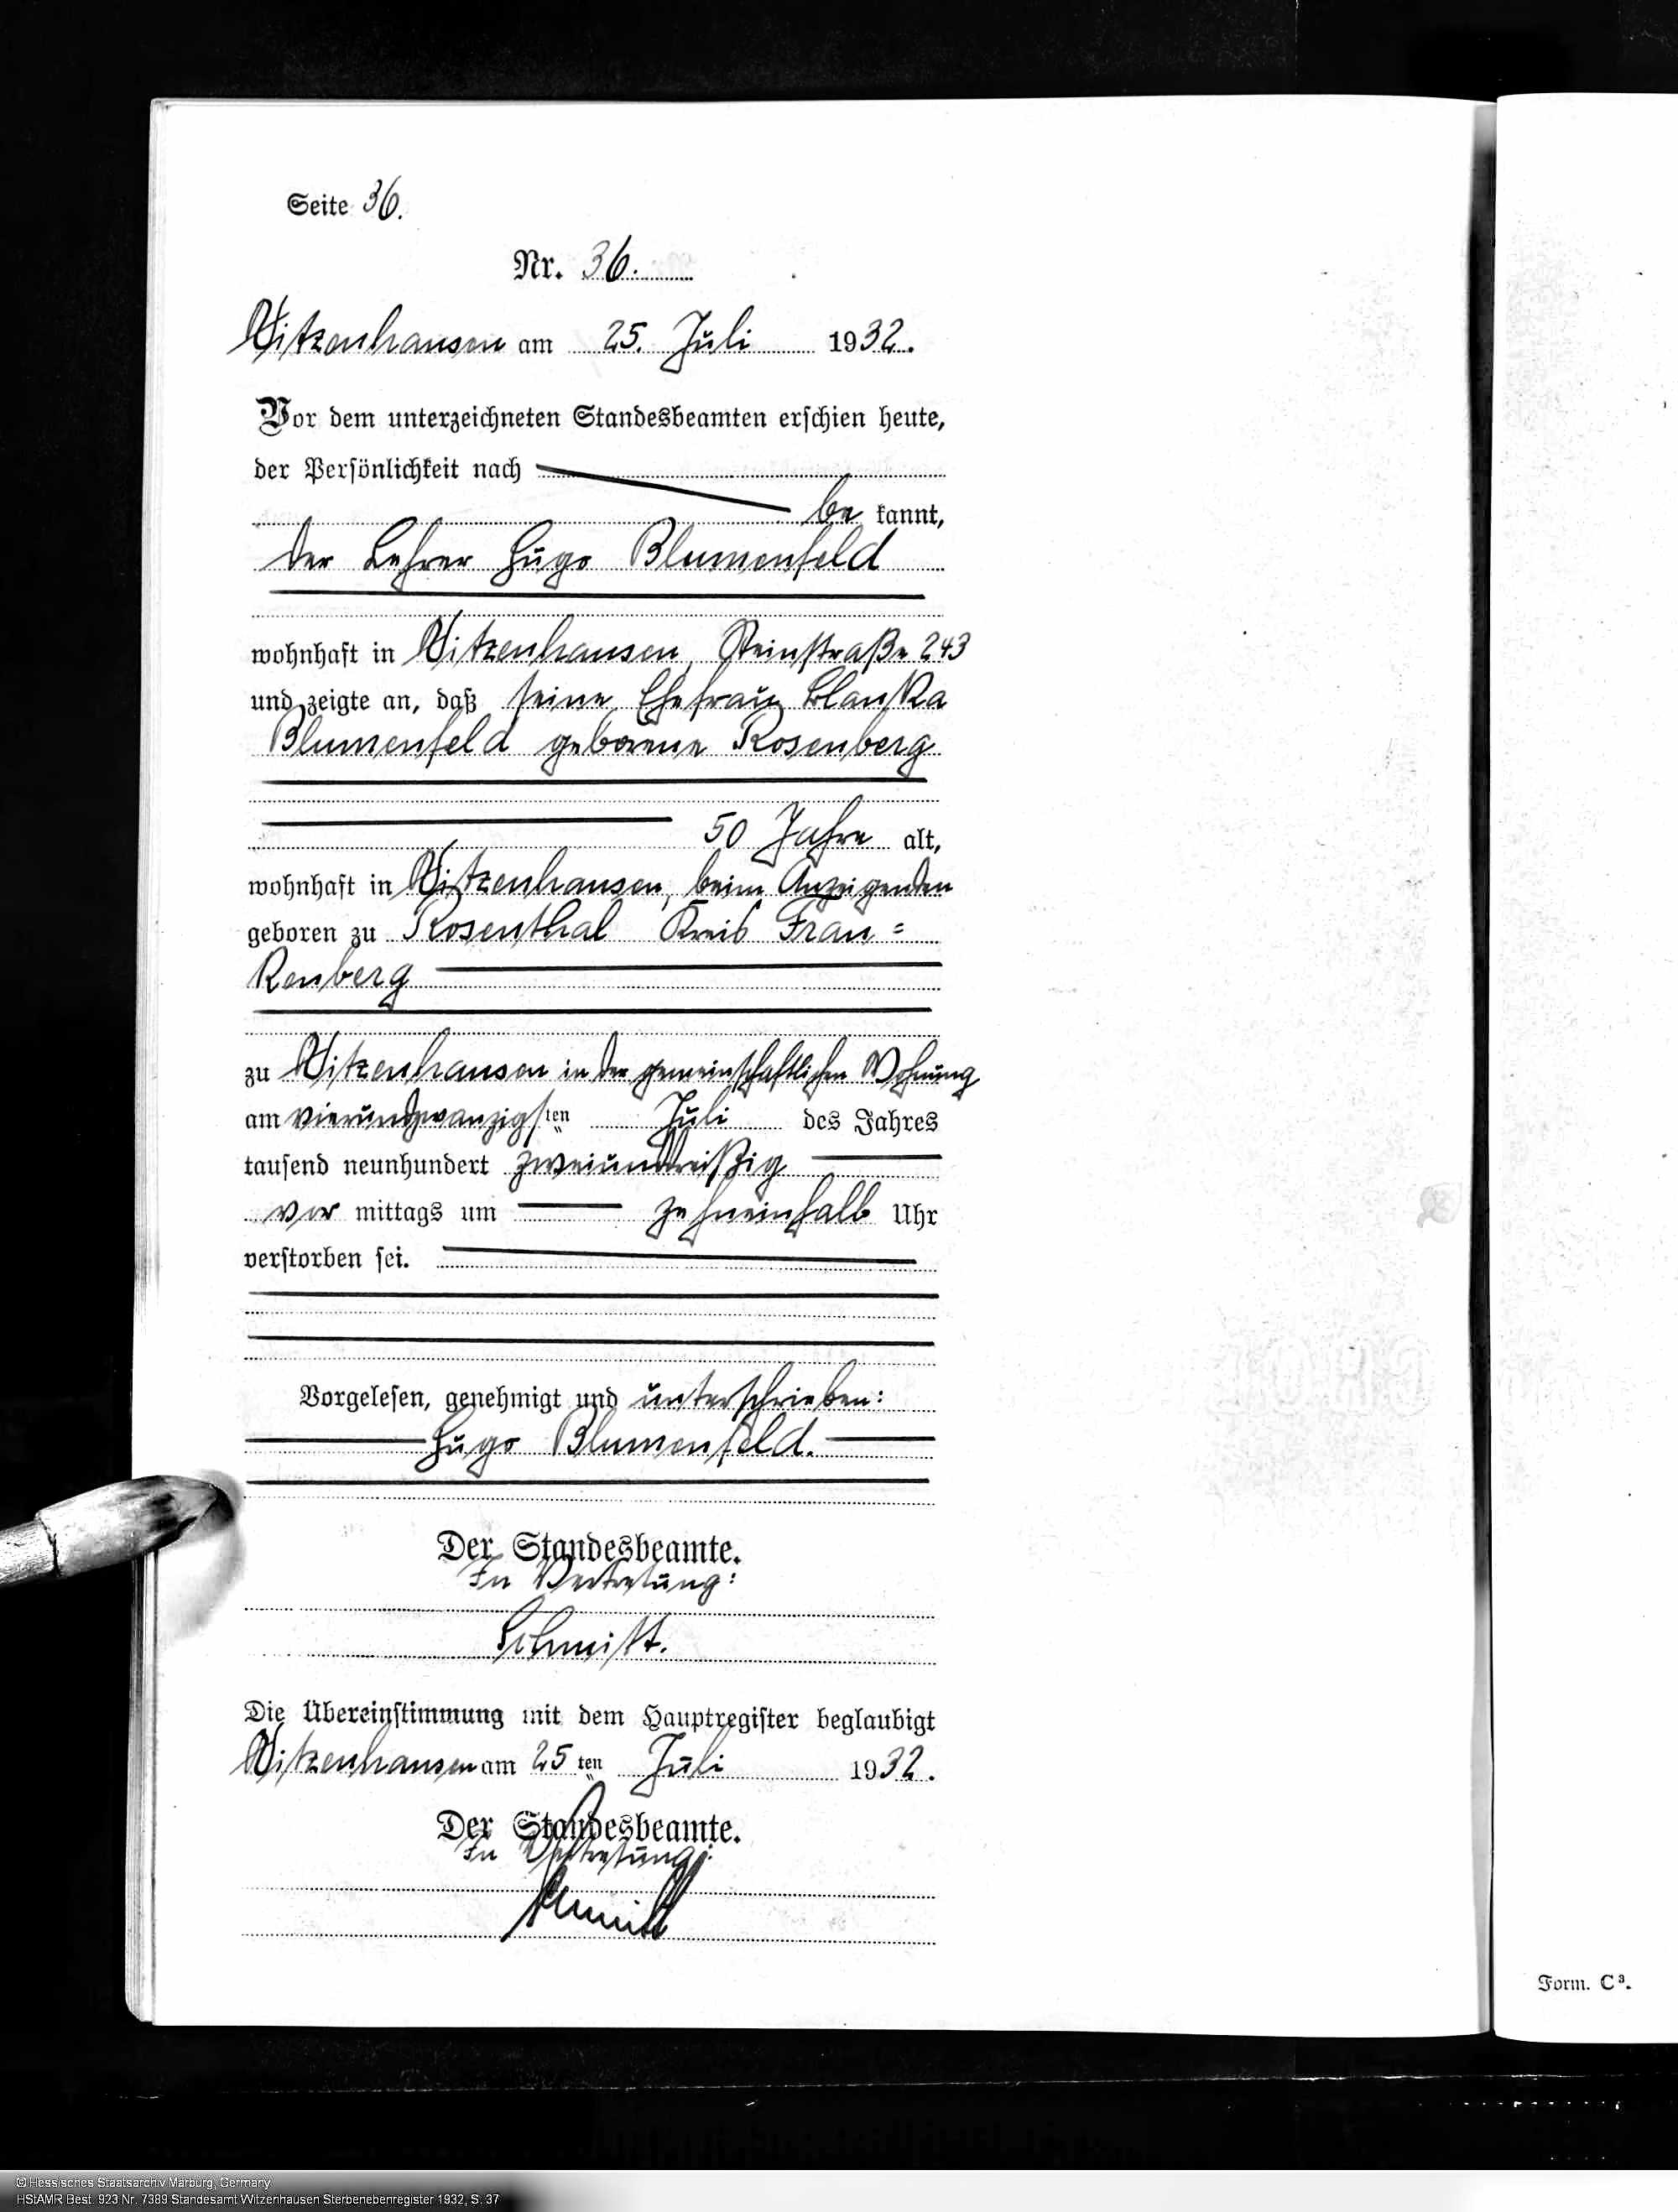 Seite 36.
Nr. 36.
Witzenhausen am 25. Juli 1932.
Vor dem unterzeichneten Standesbeamten erschien heute,
der Persönlichkeit nach
be kannt,
der Lehrer Hugo Blumenfeld
wohnhaft in Witzenhausen, Steinstraße 243
und zeigte an, daß seine Ehefrau Blanka
Blumenfeld geborene Rosenberg
50 Jahre alt,
wohnhaft in Witzenhausen, beim Anzeigenden
geboren zu Rosenthal Kreis Fran=
kenberg
zu Witzenhausen in der gemeinschaftlichen Wohnung
am vierundzwanzigsten Juli des Jahres
tausend neunhundert zweiunddreißig
vor mittags um zehneinhalb Uhr
verstorben sei.
Vorgelesen, genehmigt und unterschrieben:
Hugo Blumenfeld.
Der Standesbeamte.
In Vertretung:
Schmitt.
Die Übereinstimmung mit dem Hauptregister beglaubigt
Witzenhausen am 25 ten Juli 1932.
Der Standesbeamte.
In Vertretung:
Schmitt
Form. C³.
© Hessisches Staatsarchiv Marburg, Germany
HStAMR Best. 923 Nr. 7389 Standesamt Witzenhausen Sterbenebenregister 1932, S. 37